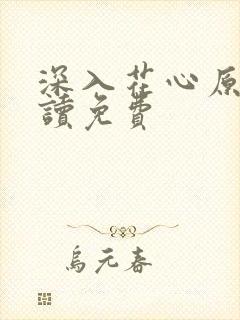 深入花心原
讀免費
烏元春